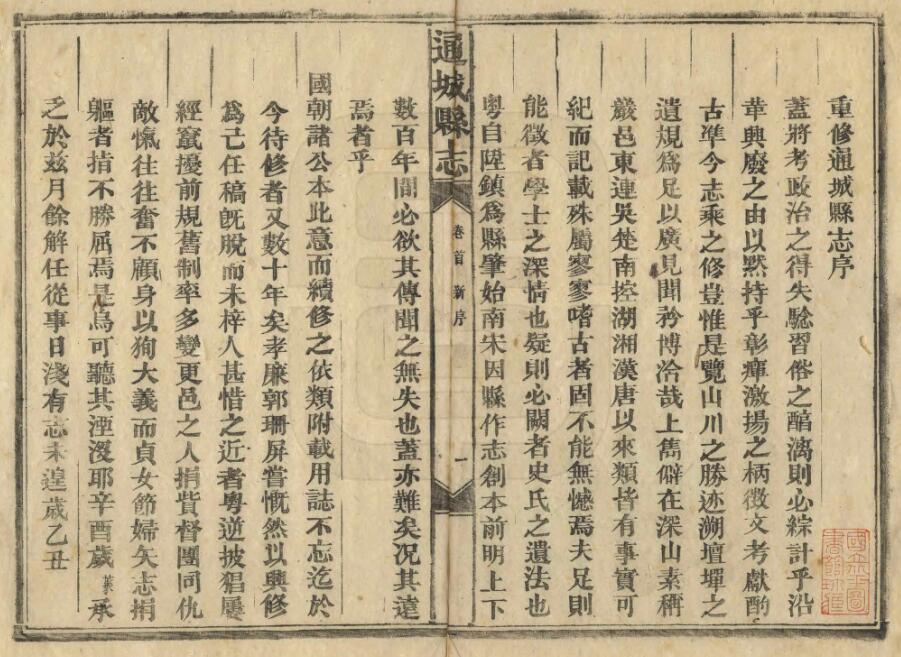 重修通城縣志序
蓋將考政治之得失騐習俗之醕漓則必綜計乎沿
革興廢之由以默持乎彰癉激揚之柄徵文考獻酌
古準今志乘之修豈惟是覽山川之勝迹溯壇墠之
遺規爲足以廣見聞矜博洽哉上雋僻在深山素稱
巖邑東連吳楚南控湖湘漢唐以來類皆有事實可
紀而記載殊屬寥寥嗜古者固不能無憾焉夫足則
能徵者學士之深情也疑則必闕者史氏之遺法也
粵自陞鎮爲縣肇始南宋因縣作志創本前明上下
通城縣志
卷首 新序
一
數百年間必欲其傳聞之無失也蓋亦難矣况其遠
焉者乎
國朝諸公本此意而續修之依類附載用誌不忘迄於
今待修者又數十年矣孝廉郭珊屏嘗慨然以興修
爲己任稿旣脫而未梓人甚惜之近者粵逆披猖屢
經竄擾前規舊制率多變更邑之人捐貲督團同仇
敵愾往往奮不顧身以狥大義而貞女節婦矢志捐
軀者指不勝屈焉是烏可聽其湮沒耶辛酉歲 承
乏於兹月餘解任從事日淺有志未遑歲乙丑